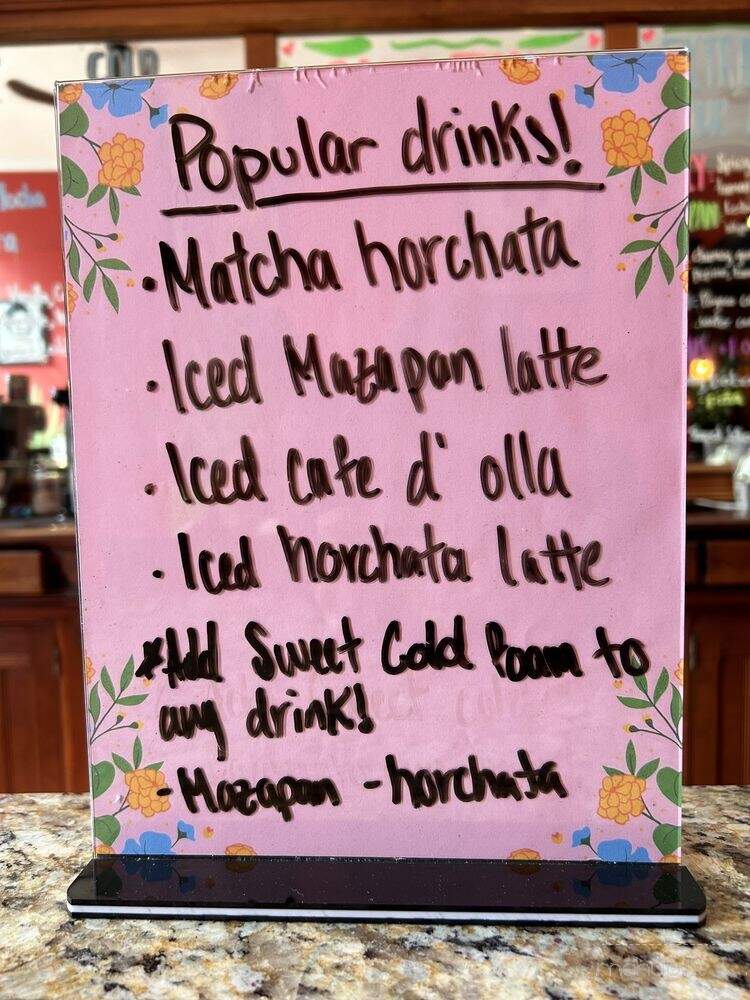 Popular drinks!
· Matcha horchata
· Iced Mazapan latte
· Iced cafe d' olla
· Iced horchata latte
*Add Sweet Cold Foam to
any drink!
- Mazapan - horchata